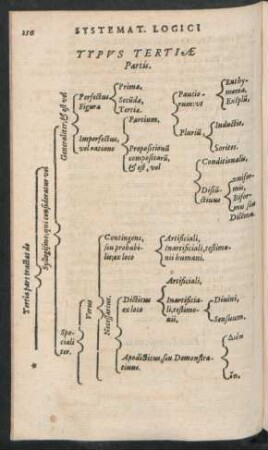 110 SYSTEMAT. LOGICI
TYPVS TERTIÆ
Partis.
Tertia pars tractat de
Syllogismo; qui consideratur vel
Generaliter; & est vel
Perfectus,
Figura
Prima.
Secũda,
Tertia.
Imperfectus,
vel ratione
Partium,
Paucio-
rum: ut
Enthy-
mema.
Exẽplũ,
Pluriũ
Inductio.
Sorites.
Propositionũ
compositarũ,
& est, vel
Conditionalis.
Disiũ-
ctiuus
Specia-
liter.
Verus
Contingens,
seu probabi-
lis; ex loco
Artificiali,
Inartificiali, testimo-
nii humani.
Necessarius.
Dicticus
ex loco
Artificiali,
Inartificia-
li, testimo-
nii,
Divini,
Sensuum.
Apodicticus, seu Demonstra-
tiuus.
Διότι
ὅτι.
*